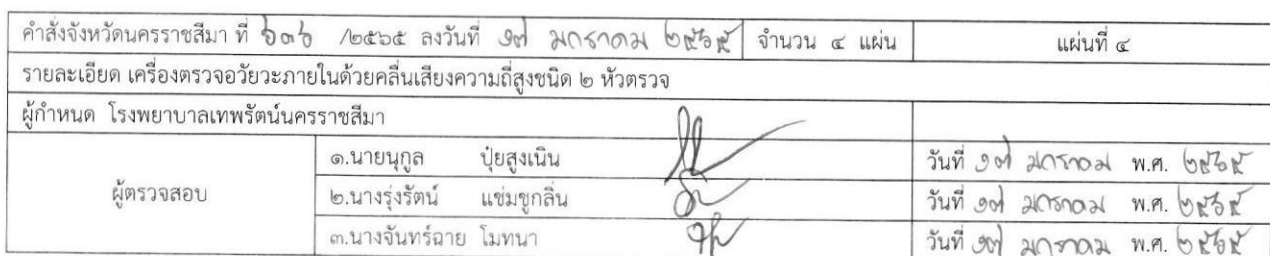 คำสั่งจังหวัดนครราชสีมา ที่ ๖๓๖ /๒๕๖๕ ลงวันที่ ๑๗ มกราคม ๒๕๖๕ จำนวน ๔ แผ่น แผ่นที่ ๔
รายละเอียด เครื่องตรวจอวัยวะภายในด้วยคลื่นเสียงความถี่สูงชนิด ๒ หัวตรวจ
ผู้กำหนด โรงพยาบาลเทพรัตน์นครราชสีมา
ผู้ตรวจสอบ
๑.นายนุกูล ปุ๋ยสูงเนิน วันที่ ๑๗ มกราคม พ.ศ. ๒๕๖๕
๒.นางรุ่งรัตน์ แช่มชูกลิ่น วันที่ ๑๗ มกราคม พ.ศ. ๒๕๖๕
๓.นางจันทร์ฉาย โมทนา วันที่ ๑๗ มกราคม พ.ศ. ๒๕๖๕